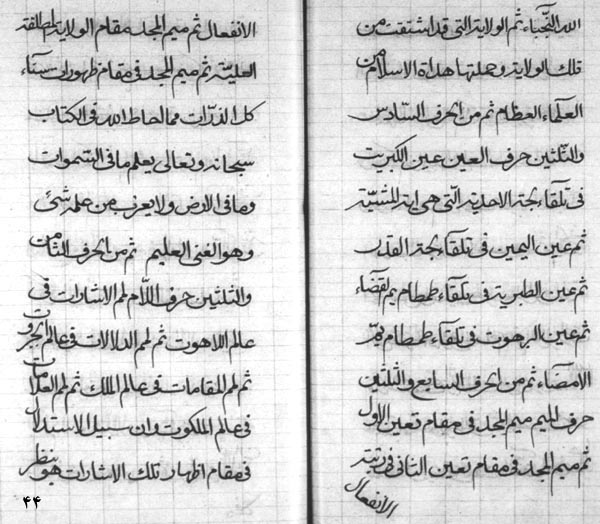 الله النجباء ثم الولاية التى قد اشتقت من
تلك الولاية وحملتها هداة الاسلام من
العلماء العظام ثم من الحرف السادس
والثلثين حرف العين عين الكبريت
فى تلقاء لجة الاحدية التى هى اية المشية
ثم عين اليمين فى تلقاء لجة القدر
ثم عين الطبرية فى تلقاء طمطام يم القضاء
ثم عين البرهوت فى تلقاء طمطام يم
الامضاء ثم من الحرف السابع والثلثين
حرف الميم ميم المجد فى مقام تعين الاول
ثم ميم المجد فى مقام تعين الثانى فى رتبة
الانفعال
الانفعال ثم ميم المجد مقام الولاية المطلقة
العلية ثم ميم المجد فى مقام ظهورات
كل الذرات مما احاط الله فى الكتاب
سبحانه وتعالى يعلم ما فى السموات
وما فى الارض ولا يعزب من علمه شئ
وهو الغنى العليم ثم من الحرف الثامن
والثلثين حرف اللام لم الاشارات فى
عالم اللاهوت ثم لم الدلالات فى عالم الجبروت
ثم لم المقامات فى عالم الملك ثم لم العلامات
فى عالم الملكوت وان سبيل الاستدلال
فى مقام اظهار تلك الاشارات هو بنظر
۴۴